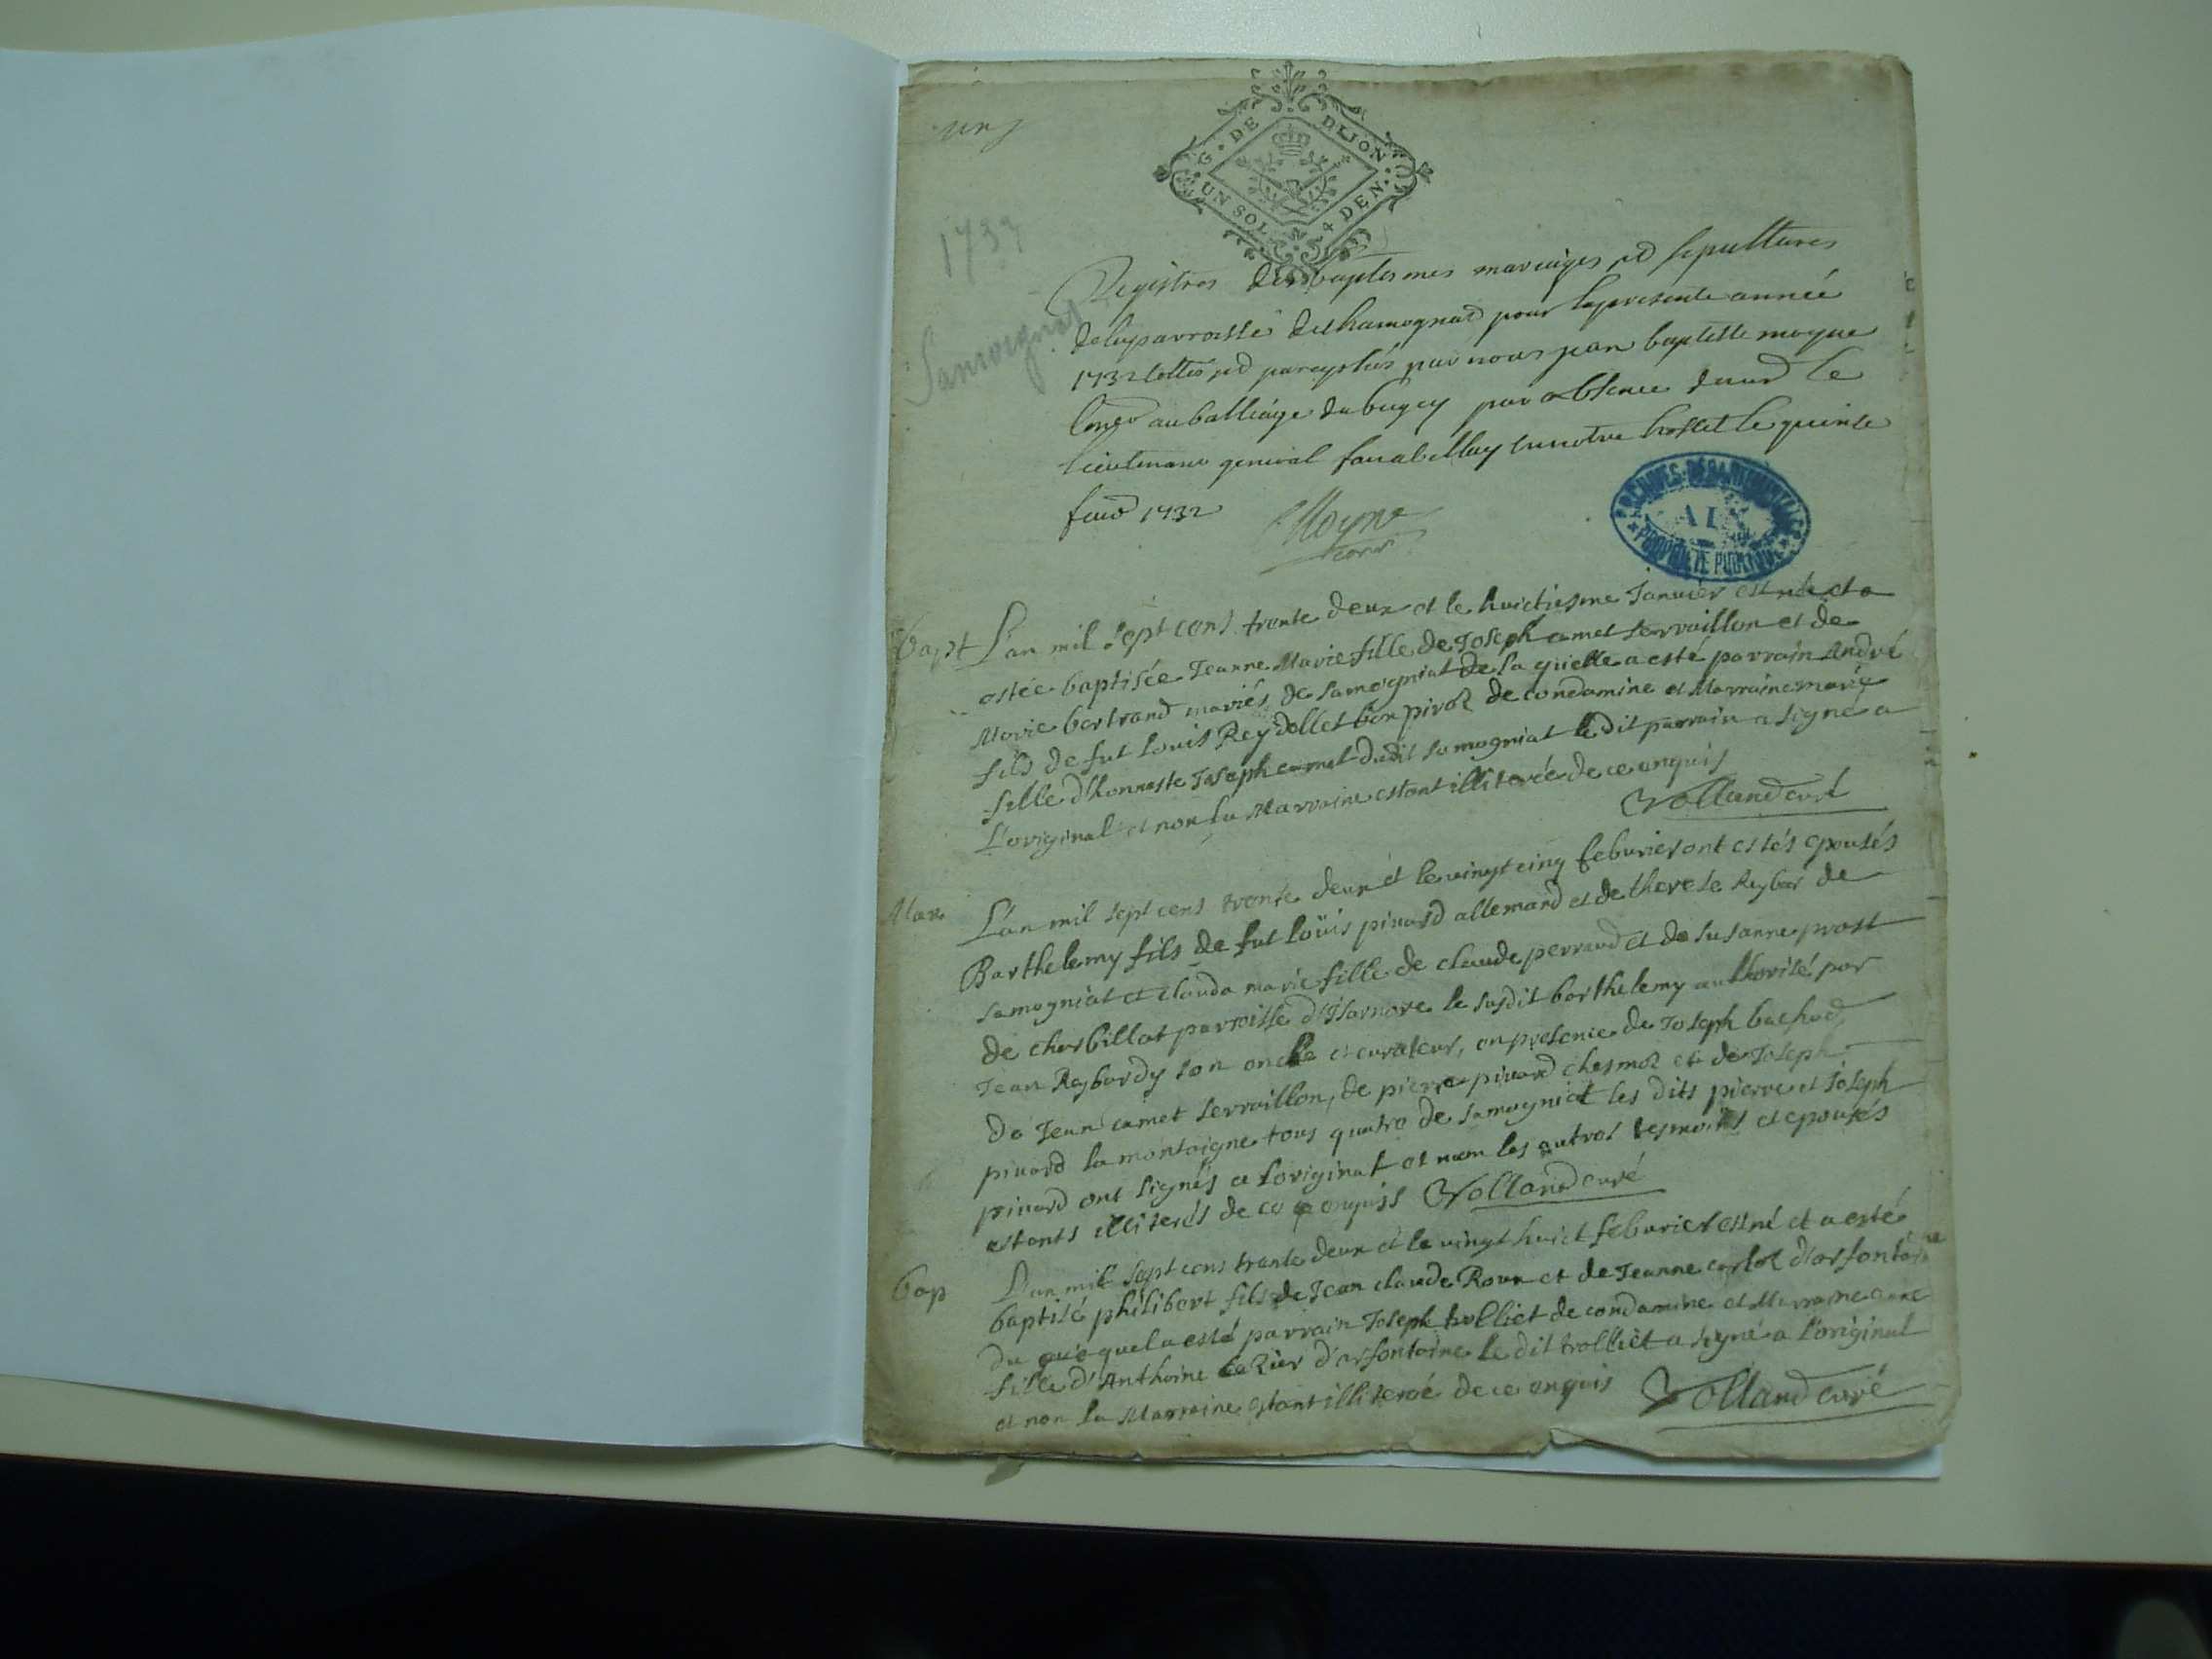 un
G. DE DIJON
UN SOL 4 DEN.
1732
Samognat
Registres des baptesmes mariages et sepultures
de la parroisse de Chamognat pour la presente annee
1732 cottes et paraphes par nous jean baptiste moyne
Conser au balliage du bugey par absence de mr le
lieutenant general fait a Belley en notre hostel le quinze
1732
Moyne
conser
ARCHIVES DÉPARTEMENTALES
AIN
PROPRIÉTÉ PUBLIQUE
bapt L'an mil sept cens trente deux et le huictiesme Janvier est née et a
estée baptisée Jeanne Marie fille de Joseph camet servaillon et de
Marie bertrand mariés de samogniat de laquelle a esté parrain André
fils de fut Louis Reydellet bon pivot de condamine et Marraine marie
fille d'honneste Joseph camet dudit samogniat le dit parrain a signé a
L'original et non la Marraine estant illiterée de ce enquis
Volland curé
Mar L'an mil sept cens trente deux et le vingt cinq feburier ont estés epousés
Barthelemy fils de fut Loüis pinard allemand et de therese Reybar de
samogniat et clauda marie fille de claude perraud et de Susanne prost
de charbillat parroisse d'Isarnore le susdit barthelemy authorisé par
Jean Reybardy son oncle et curateur, en presence de Joseph bachod,
de Jean camet servaillon, de pierre pinard chesmoz et de Joseph
pinard la montaigne tous quatre de samogniat les dits pierre et Joseph
pinard ont signés a l'original et non les autres tesmoins et epousés
estants illiterés de ce enquiss Volland curé
bap L'an mil sept cens trente deux et le vingt huict feburier est né et a esté
baptisé philibert fils de Jean claude Roux et de Jeanne carloz d'arfontaine
du quel a esté parrain Joseph trolliet de condamine et Marraine
fille d'Anthoine d'arfontaine le dit trolliet a signé a l'original
et non la Marraine estant illiterée de ce enquis Volland curé